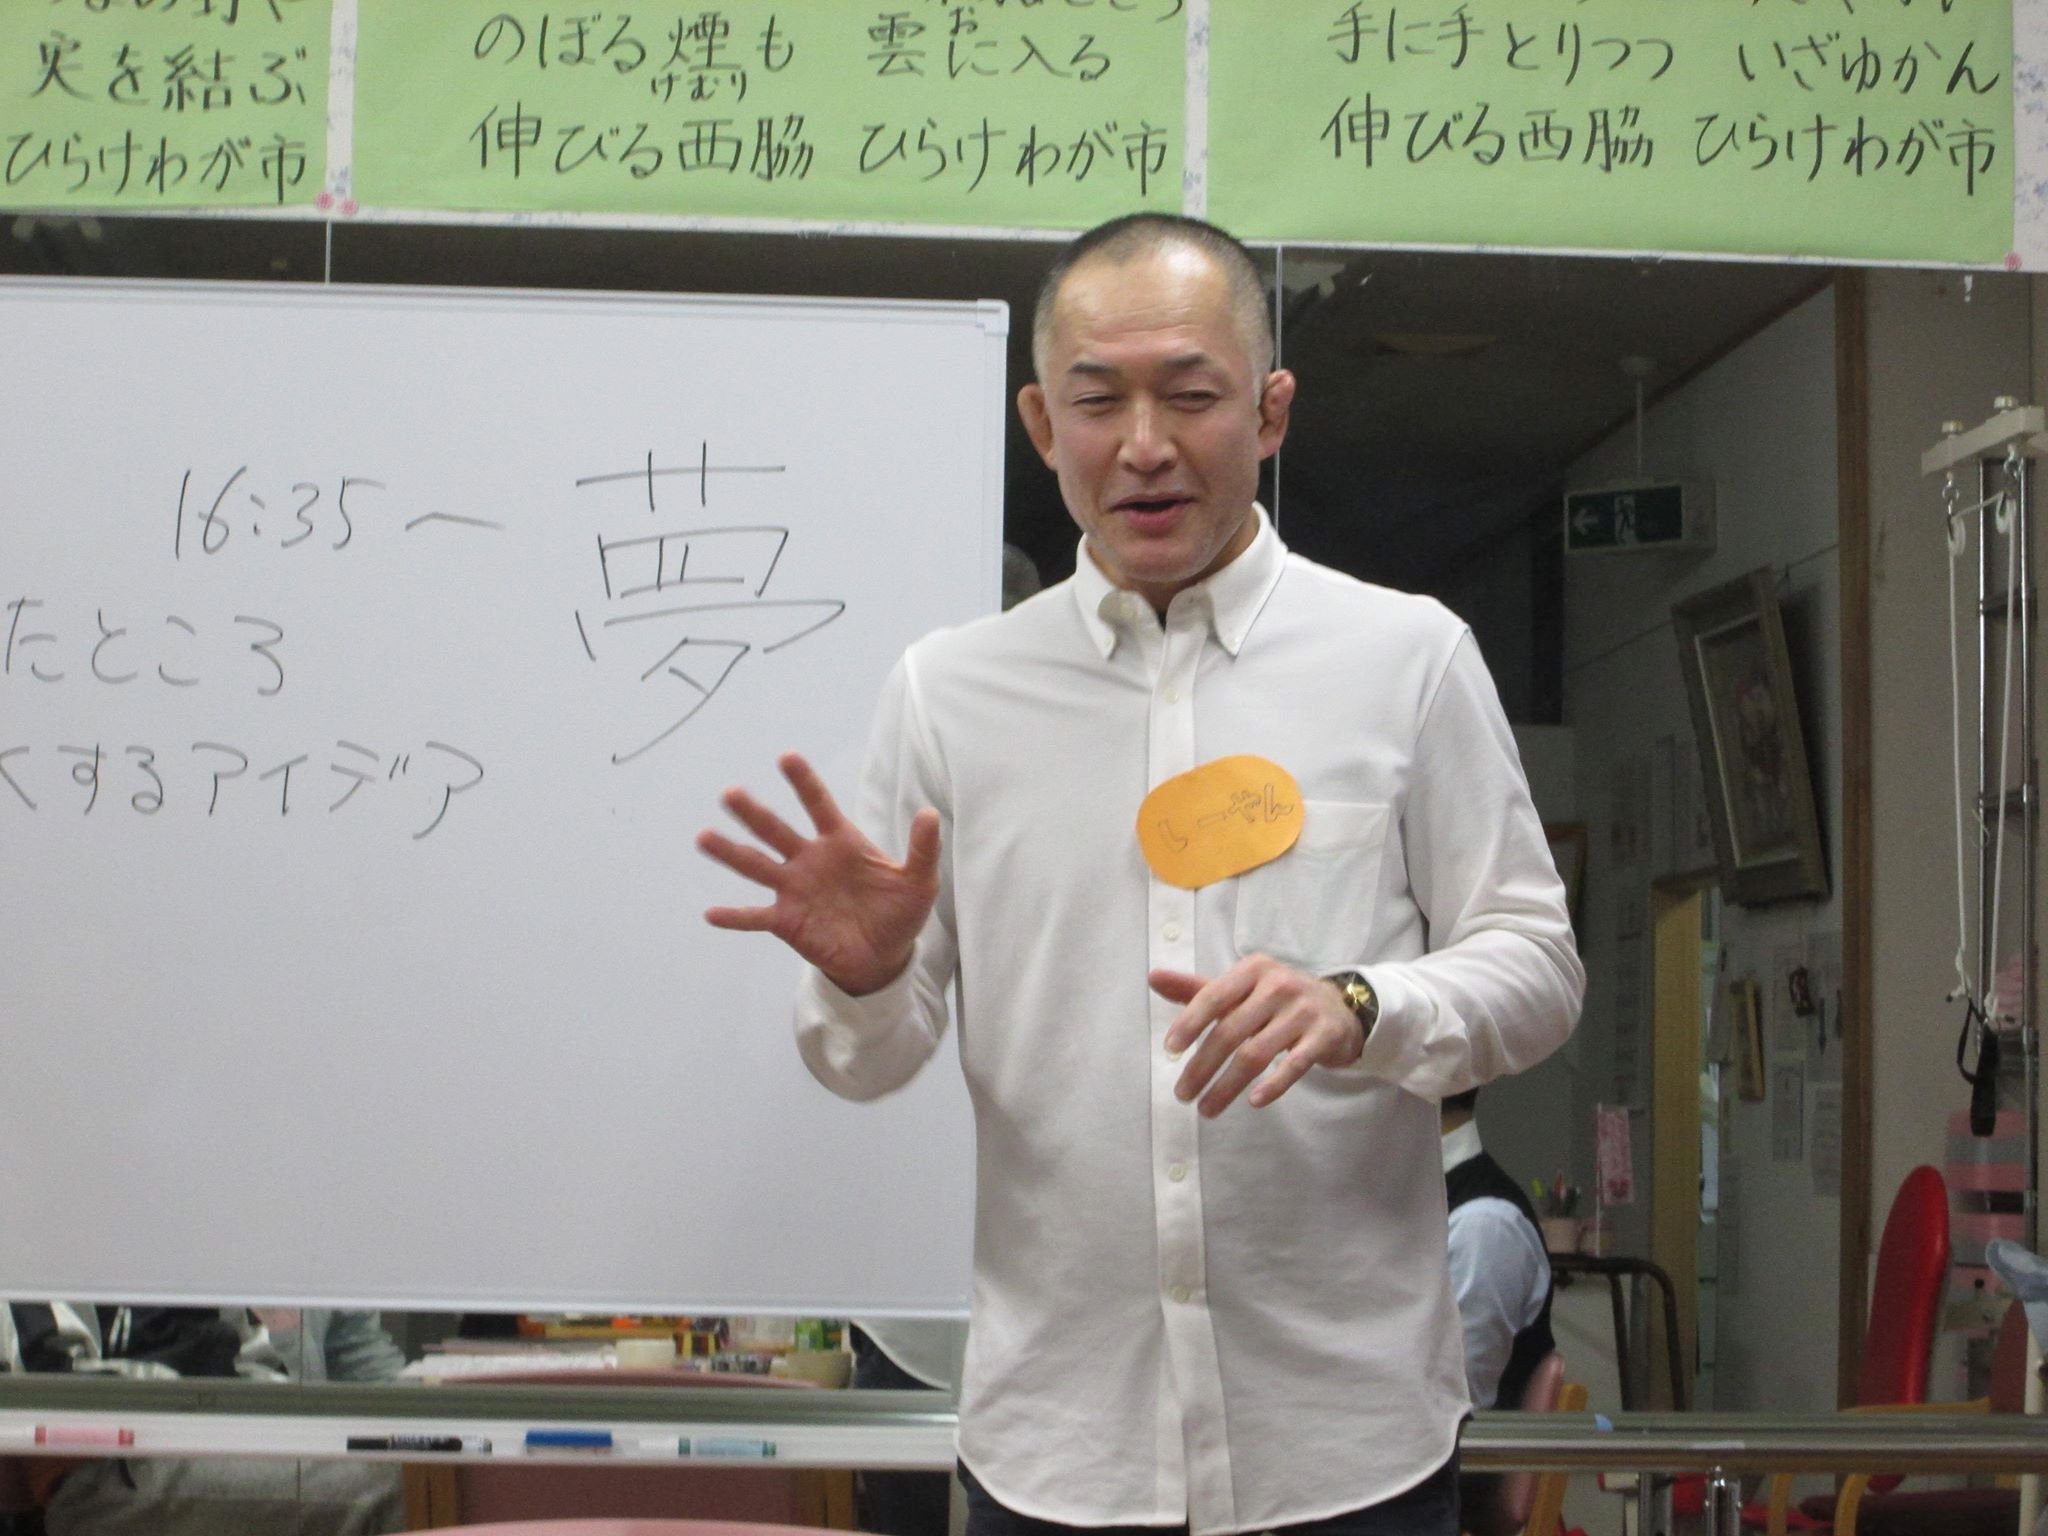 実を結ぶ
ひらけわが市
のぼる煙も 雲に入る
けむり
お
伸びる西脇 ひらけわが市
手に手とりつつ いざゆかん
伸びる西脇 ひらけわが市
16:35～ 夢
たところ
くするアイデア